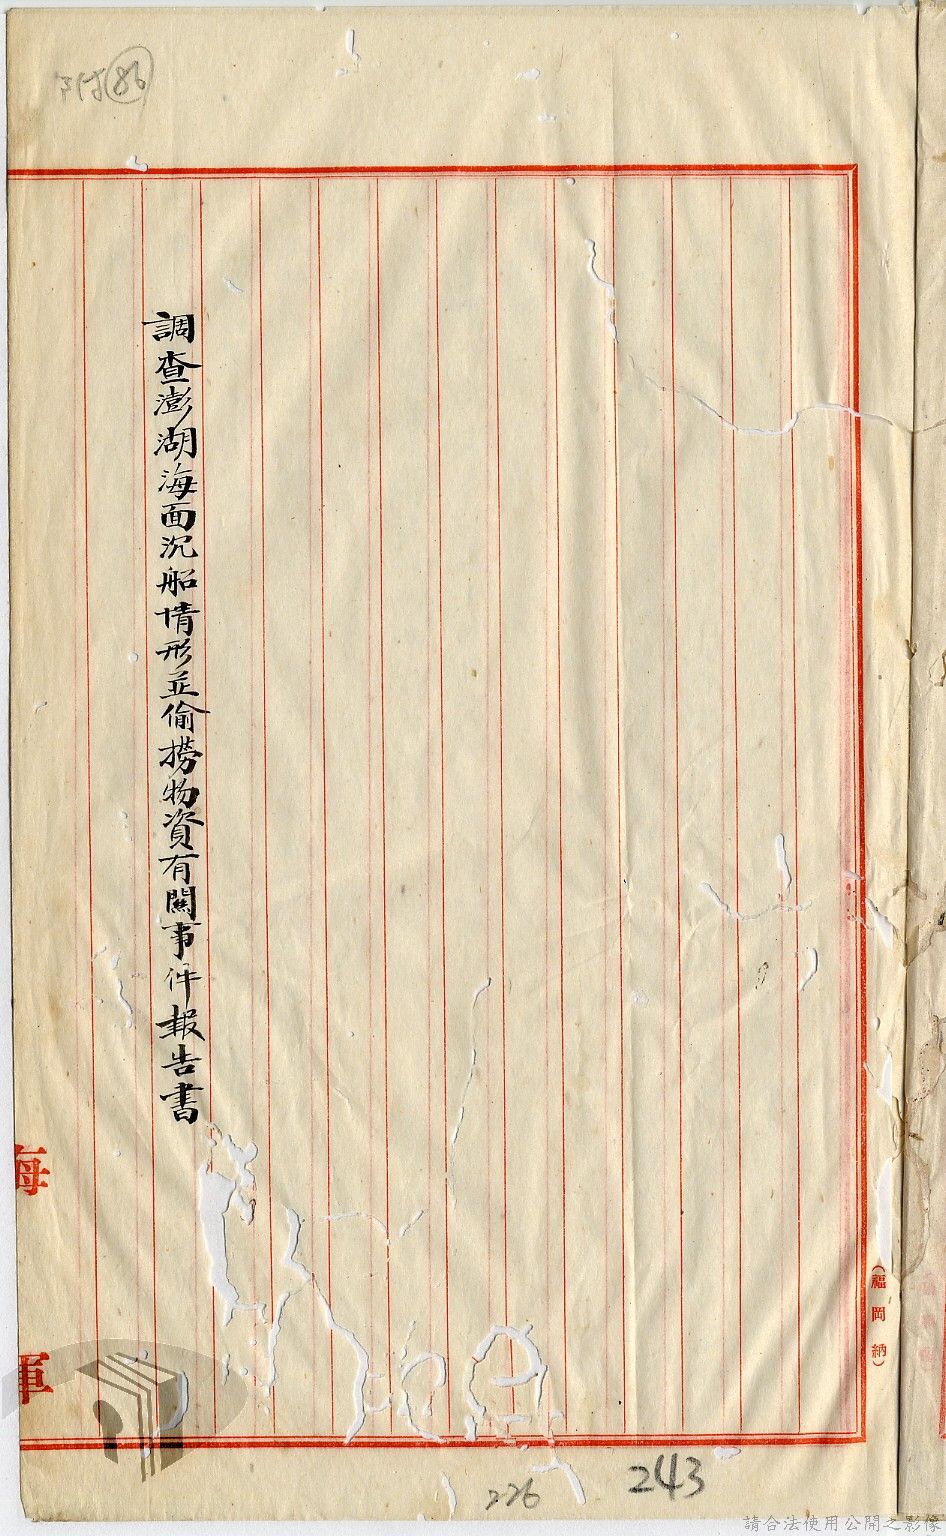 附86
調查澎湖海面沉船情形並偷撈物資有關事件報告書
海軍
(福岡納)
226
243
請合法使用公開之影像